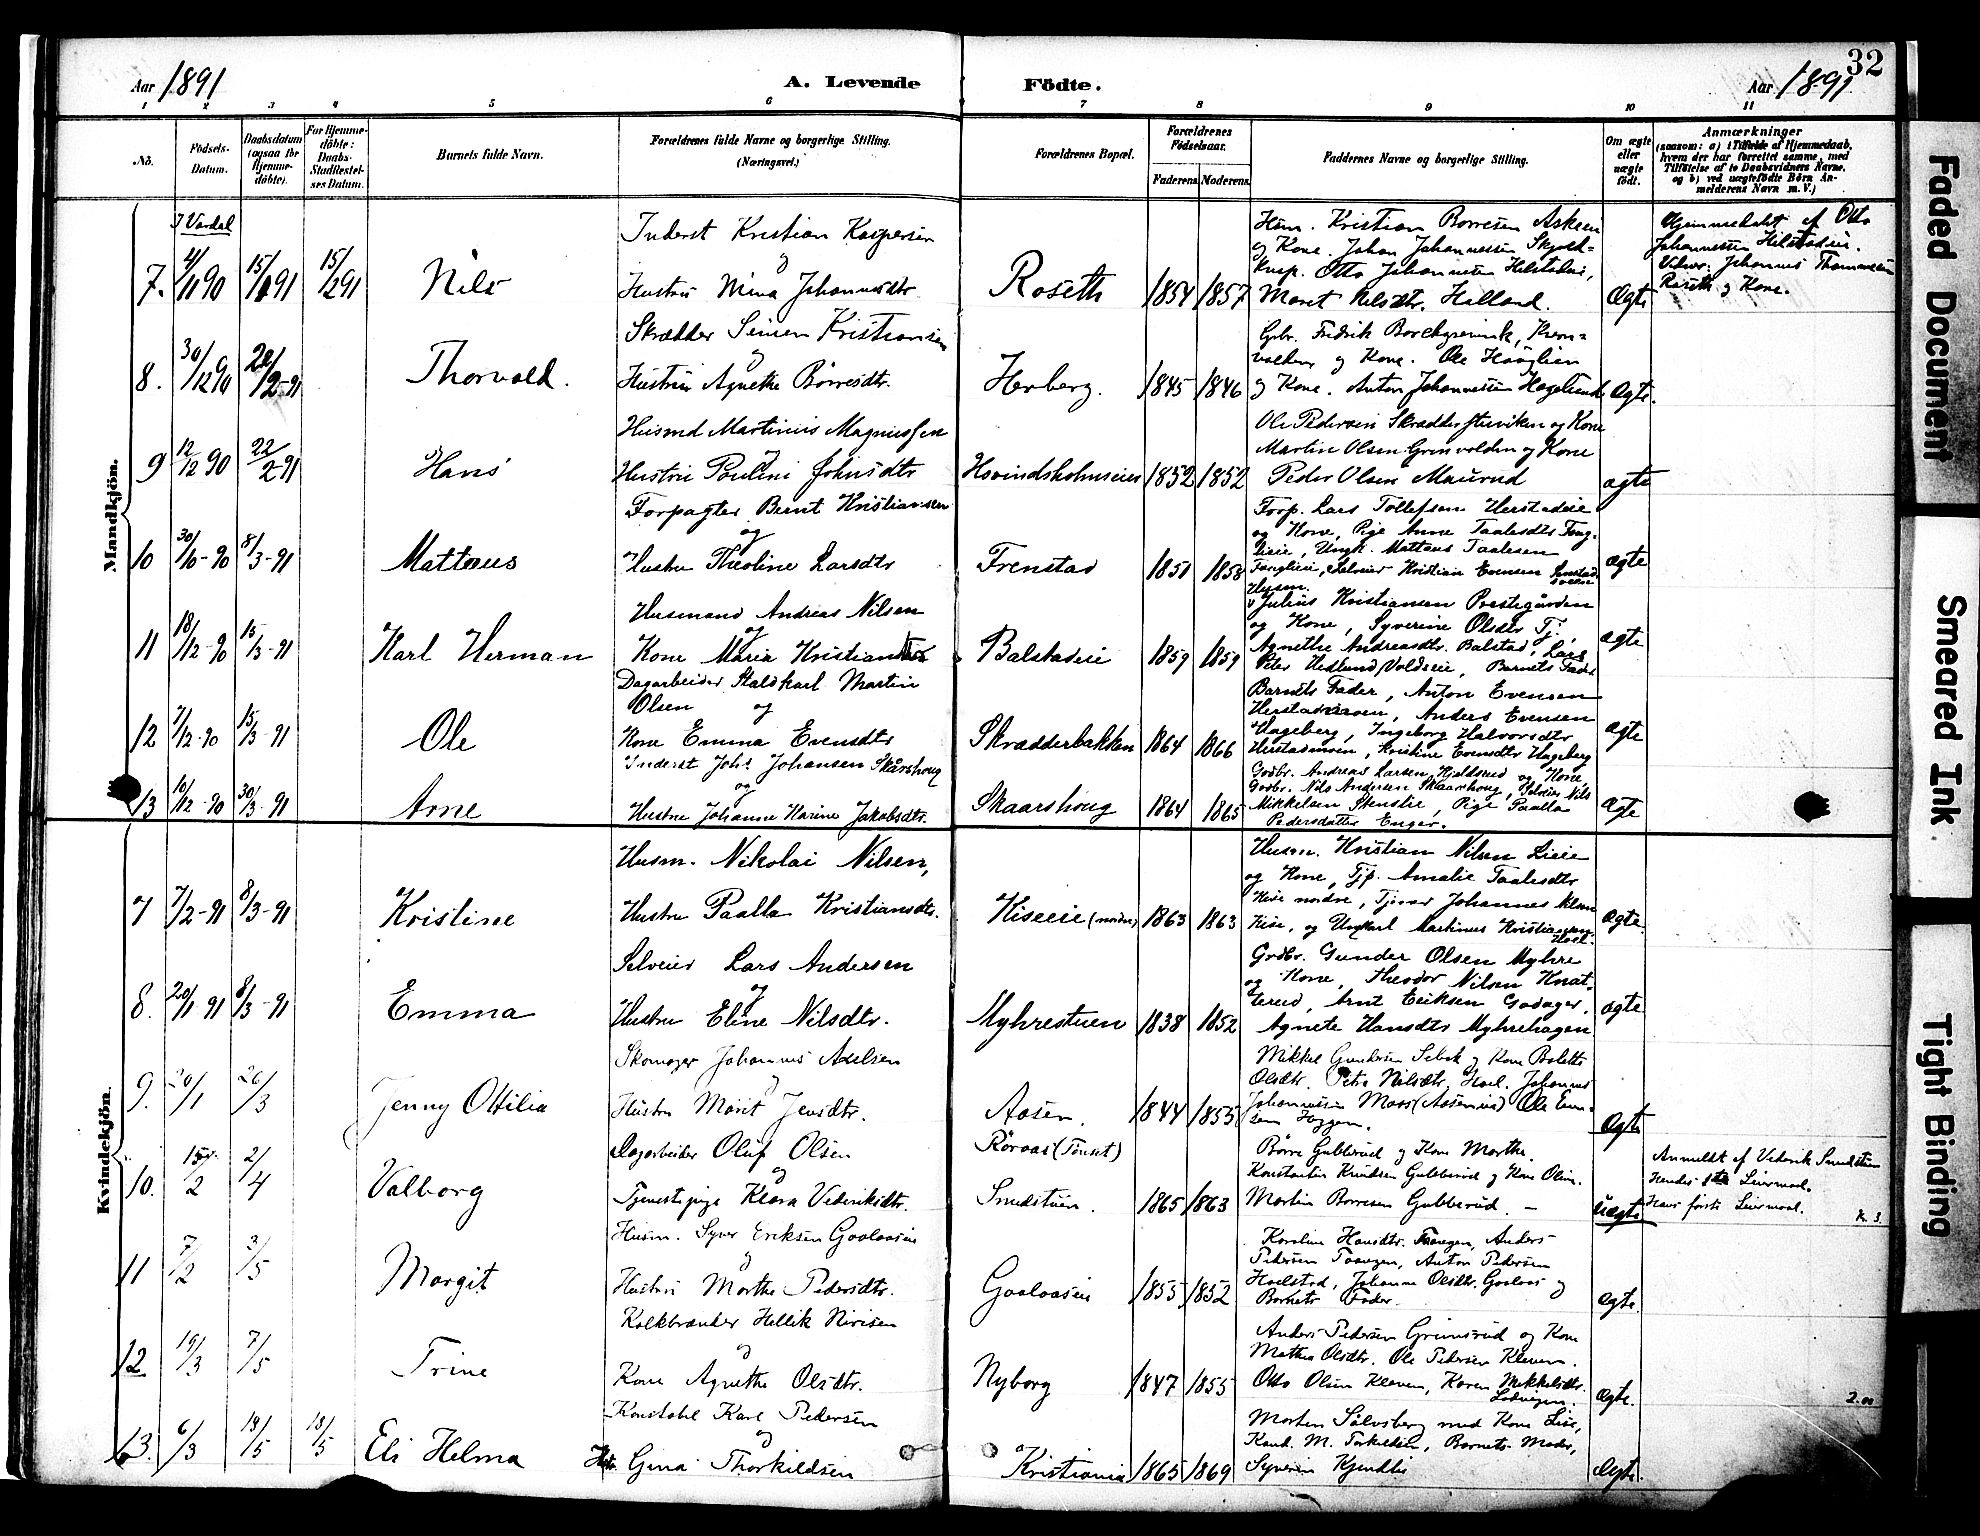 32
Aar 1891
A. Levende
Födte.
Aar 1891
1 2 3 4 5 6 7 8 9 10 11
No.
Födsels-Datum.
Daabsdatum (ogsaa for Hjemme-döbte).
For Hjemme-döbte: Daabs-Stadfæstel-ses Datum.
Barnets fulde Navn.
Forældrenes fulde Navne og borgerlige Stilling. (Næringsvei.)
Forældrenes Bopæl.
Forældrenes Födselsaar.
Faderens. Moderens.
Faddernes Navne og borgerlige Stilling.
Om ægte eller uægte födt.
Anmærkninger
(saasom: a) i Tilfælde af Hjemmedaab,
hvem der har forrettet samme, med
Tilföielse af to Daabsvidners Navne,
og b) ved uægtefödte Börn An-
melderens Navn m. V.)
Mandkjön.
I Vardal
7. 4/11 90 15/1 91 15/2 91 Nils
Inderst Kristian Kaspersen
og
Hustru Mina Johannesdtr.
Roseth 1854 1857
Husm. Kristian Borresen Askeie
og Kone. Johan Johannessen Skjold=
Otto Johannesen Helstadeie,
Maret Nilsdtr. Holland.
Ægte
Hjemmedøbt af Otto
Johannessen Helstadeie.
Vidner. Johannes Thommesen
Roseth og Kone.
8. 30/12 90 20/2-91 Thorvald.
Skrædder Simen Kristiansen
og
Hustru Agnethe Børresdtr.
Herberg. 1845 1846
Gbr. Fredrik
og Kone. Ole Haaglien
og Kone. Anton Johannessen Hagelund
Ægte.
9 12/12 90 22/2-91 Hans
Husmd Martinus Magnussen
og
Hustru Pouline Johnsdtr
Hovindsholmseie 1852 1852
Ole Pedersen Skrædderstuviken og Kone
Martin Olsen Grinvolden og Kone
Peder Olsen Maurud
ægte
10 30/10-90 8/3-91 Mattæus
Forpagter Bernt Kristiansen
og
Hustru Theoline Larsdtr
Frenstad 1851 1858
Forp. Lars Tollefsen Herstadeie
og Kone, Pige Anne Taalesdtr Teng-
lieie, Ungk. Mattæus Taalesen
Tenglieie, Selveier Kristian Evensen
ægte
11 18/12-90 15/3-91 Karl Herman
Husmand Andreas Nilsen
og
Kone Maria Kristiansdtr
Balstadeie 1859 1859
Husm.
Julius Kristiansen Prestegården
og Kone, Syverine Olsdtr Tj.
Agnethe Andreasdtr. Balstad, Lars
Peter Hedlund Voldseie, Barnets Fader
ægte
12 7/12-90 15/3-91 Ole
Dagarbeider Staldkarl Martin
Olsen og
Kone Emma Evensdtr
Skrædderbakken 1864 1866
Barnets Fader, Anton Evensen
Herstadsveen, Anders Evensen
Hageberg, Ingeborg Halvorsdtr
Herstadsveen, Kristine Evensdtr Hageberg
ægte
13 10/12-90 30/3-91 Arne
Inderst Johs. Johansen Skårshoug
og
Hustru Johanne Karine Jakobsdtr.
Skaarshoug 1864 1865
Gbr. Andreas Larsen Hjeldsrud og Kone,
Godbr. Nils Andersen Skaarshoug, Selveier Nils
Mikkelsen Stenslie, Pige Paalla
Pedersdatter Enger.
ægte
Kvindekjön.
7 7/2-91 8/3-91 Kristine
Husm. Nikolai Nilsen,
Hustru Paalla Kristiansdtr.
Kiseeie (nordre) 1863 1863
Husm. Kristian Nilsen Lieie
og Kone, Tjp. Amalie Taalesdtr
Kise nordre, Tjener Johannes Nilsen
Kise, og Ungkarl Martinus Kristiansen
Hoel.
ægte
8. 20/1-91 8/3-91 Emma
Selveier Lars Andersen
og
Hustru Eline Nilsdtr.
Myhrestuen 1838 1852
Grdbr. Gunder Olsen Myhre
og Kone, Theodor Nilsen Knat-
terud, Arnt Eriksen Godager,
Agnete Hansdtr Myhrehagen
ægte
9. 20/1 26/3 Jenny Ottilia
Skomager Johannes Axelsen
og
Hustru Marit Jensdtr.
Aasen. 1844 1855
Mikkel Gundersen og Kone Bolette
Olsdtr. Petra Nilsdtr. Hoel. Johannes
Johannessen Moss (Aaseneie) Ole Even-
sen Heggen.
Ægte
10. 15/2 2/4 Valborg
Dagarbeider Oluf Olsen
og
Tjenestepige Klara Vederiksdtr.
Røraas (Tønset)
Smedstuen. 1865 1863
Børre Gubberud og Kone Marthe.
Konstantin Knudsen Gubberud og Kone Oline.
Martin Borresen Gubberud. —
Uægte
Anmeldt af Vederik Smedstuen
Hendes 1ste Leiermaal.
Hans første Leiermaal.
K. 3.
11 7/2 3/5 Margit
Husm. Syver Eriksen Gaalaaseie
Hustru Marthe Pedersdtr.
Gaalaaseie 1855 1852
Karoline Hansdtr. Taangen, Anders
Pedersen Taangen, Anton Pedersen
Hoelstad, Johanne Olsdtr. Gaalaas og
Barnets Fader.
Ægte.
12 19/3 7/5 Trine
Kalkbrænder Hellik Nirisen
og
Kone Agnethe Olsdtr.
Nyborg 1847 1855
Anders Pedersen Grimsrud og Kone
Mathea Olsdtr. Ole Pedersen Kleven.
Otto Olsen Kleven, Karen Mikkelsdtr.
Ægte.
2.00
13. 6/3 18/5 18/5 Eli Helma
Konstabel Karl Pedersen
og
Hstr. Gina Thorkildsen
Kristiania 1865 1869
Morten Sølvsberg med Kone Lise,
Kand. M. Torkildsen, Barnets Moder,
Syverin Kjendlie
Ægte.
Faded Document
Smeared Ink.
Tight Binding